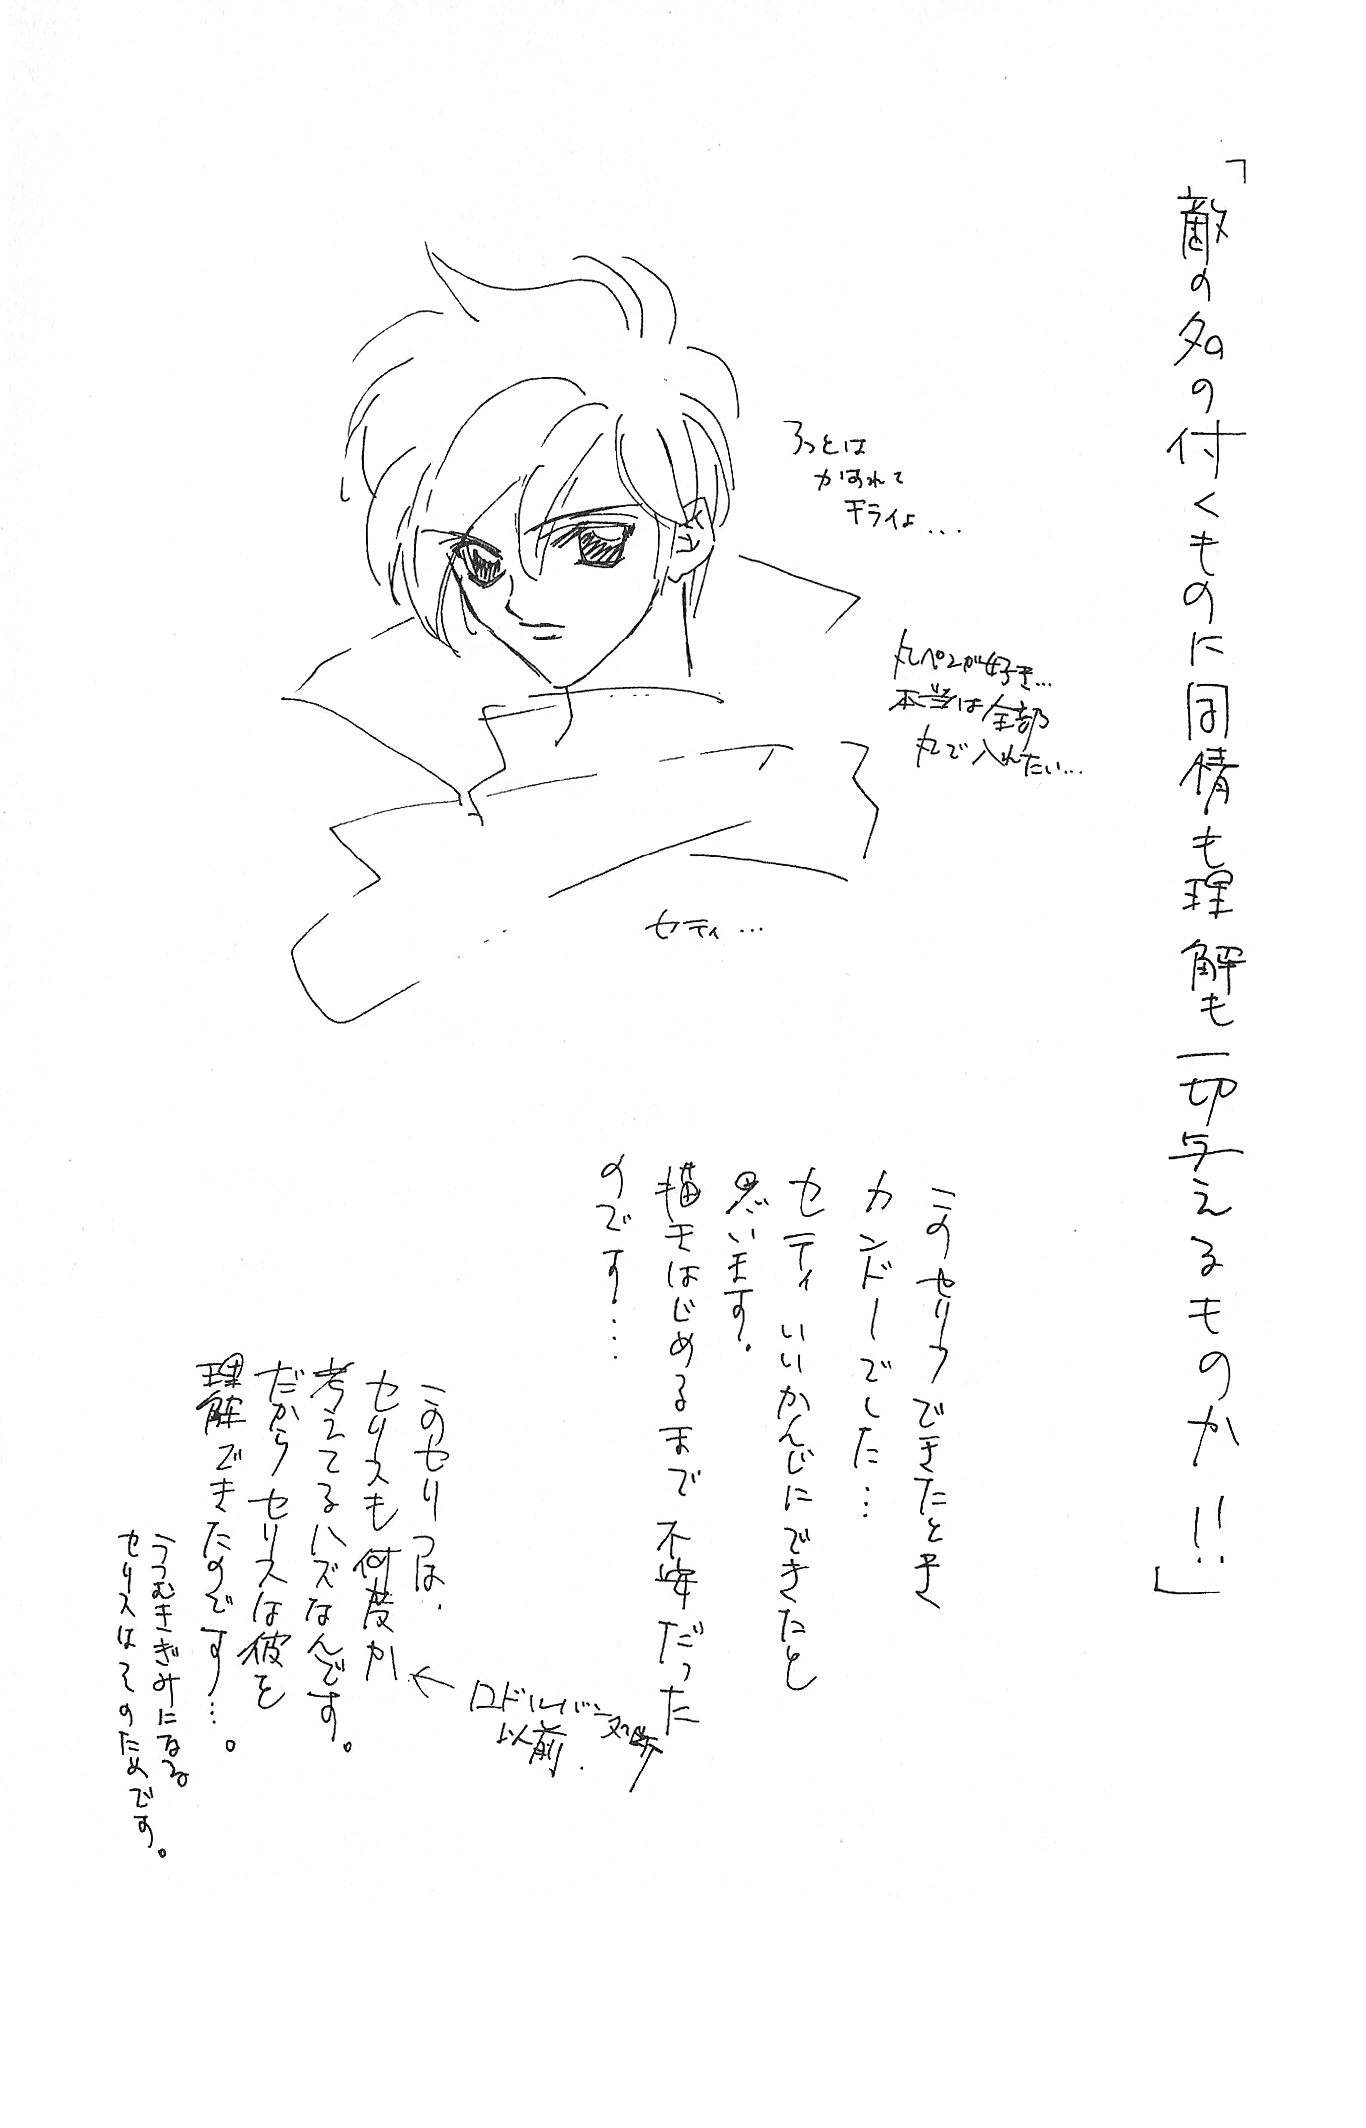 「敵の名の付くものに同情も理解も一切与えるものか!!」
ろっとは
かすれて
キライよ...
丸ペンが好き...
本当は全部
丸で入れたい...
セティ...
このセリフできたとき
カンドーでした...
セティいいかんじにできたと
思います。
描きはじめるまで不安だった
のです...
このセリフは、
セリスも何度か
考えてるハズなんです。
だからセリスは彼を
理解できたのです...。
←
以前.
うつむきぎみになる
セリスはそのためです。